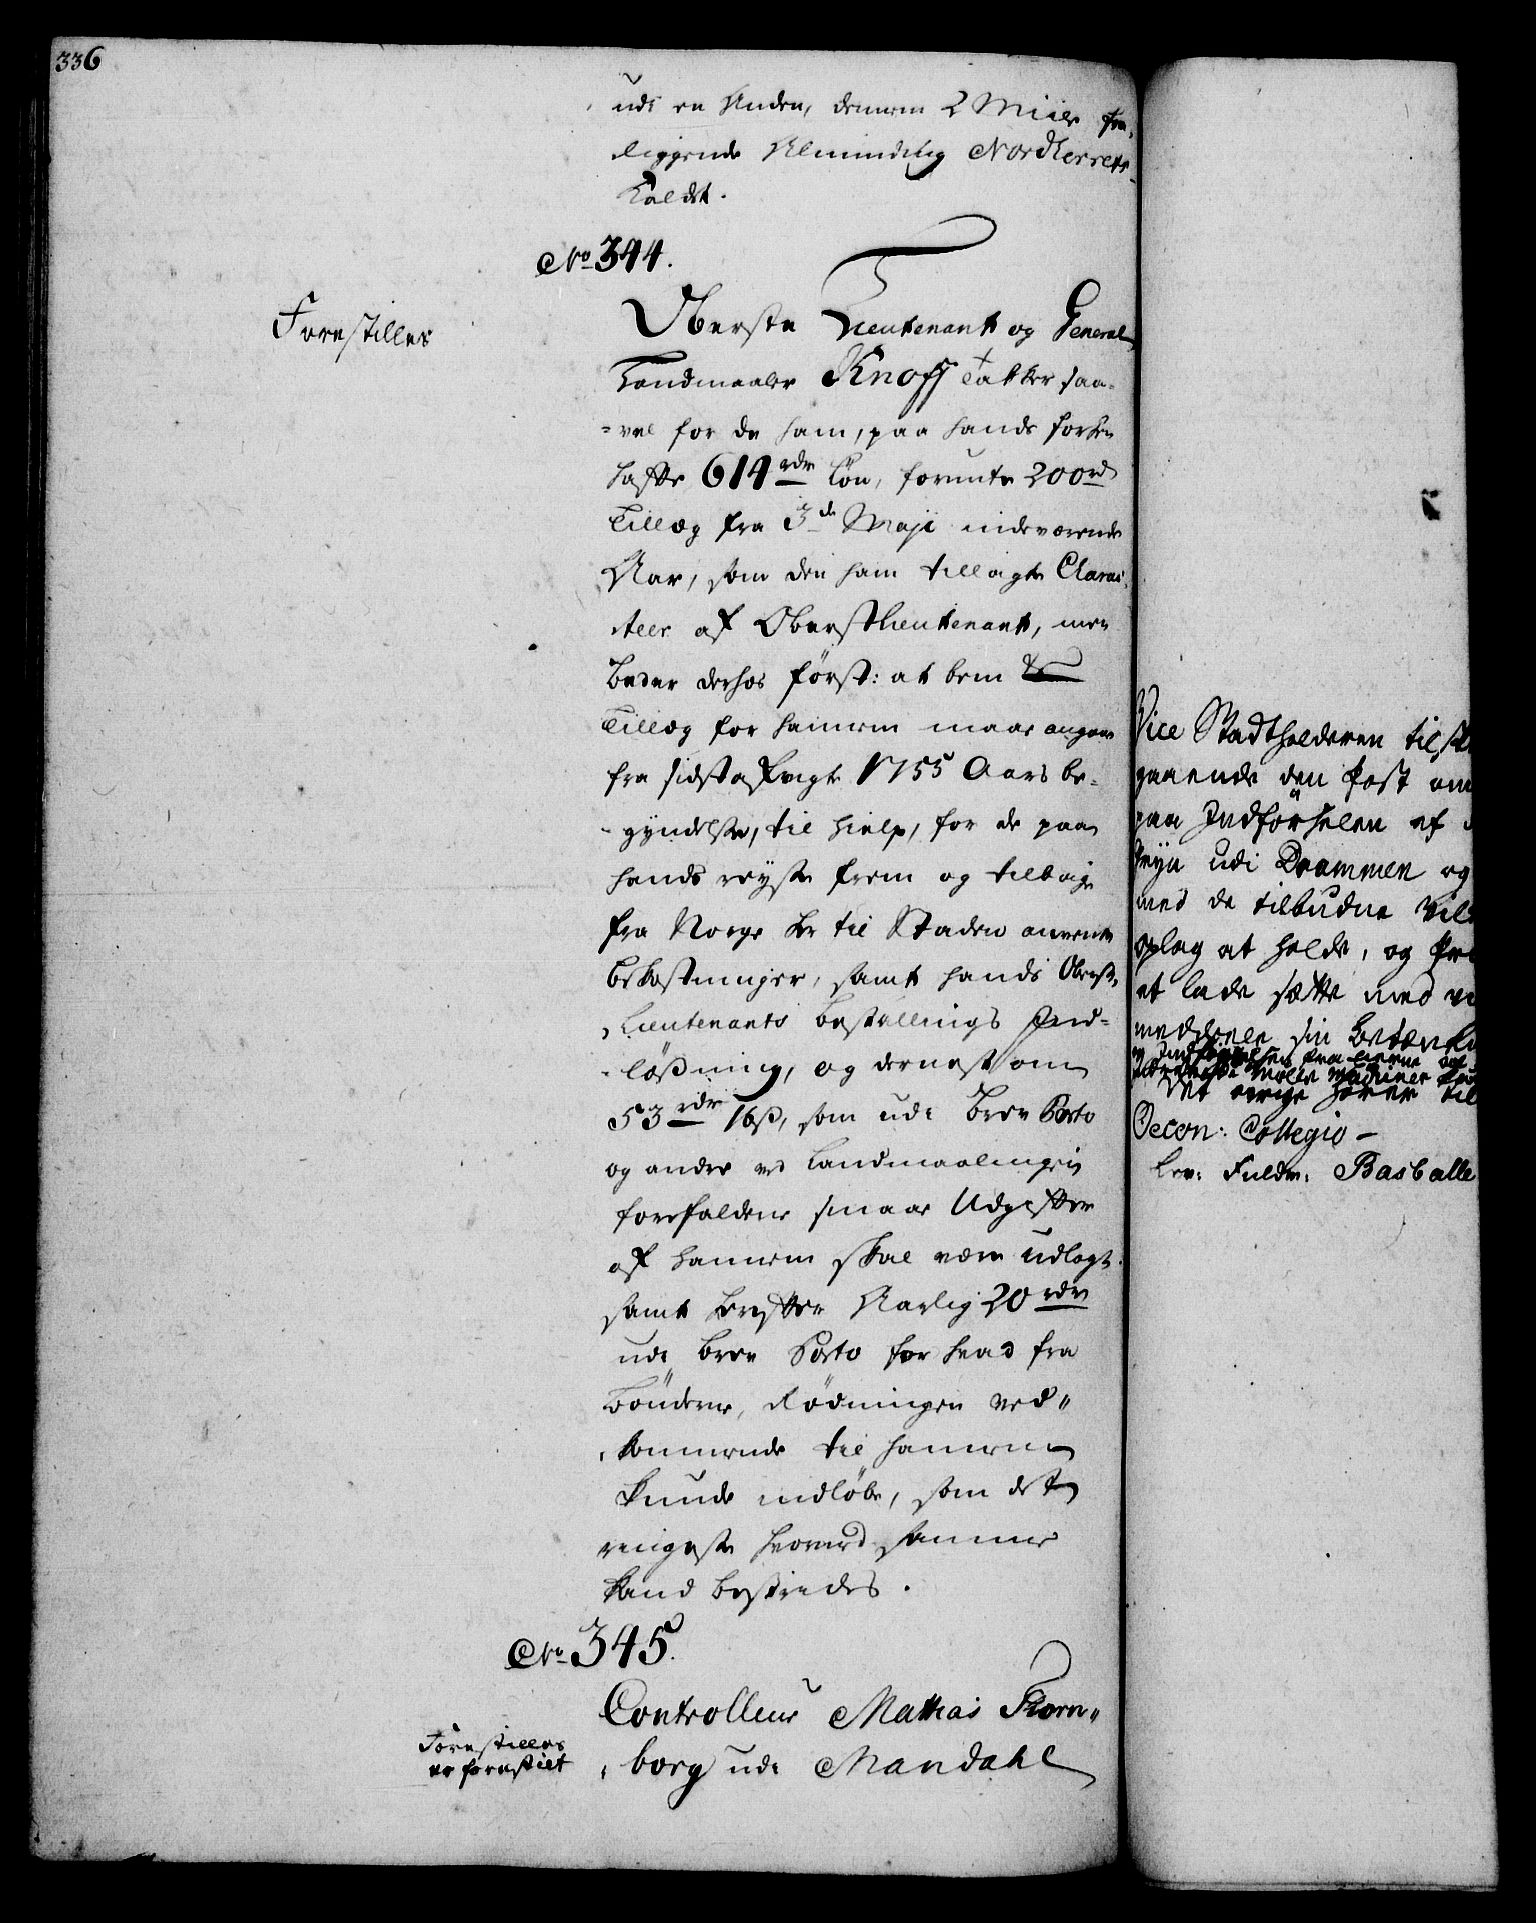 336
udi en Anden, dennem 2 Miile fra
liggende Alminding Nordherrets
kaldet.
No 344.
Forestilles
Oberste Lieutenant og General
Landmaaler Knoff takker saa-
-vel for de ham, paa hands forhen
hafte 614 rdr Løn, forunte 200 rd
Tillæg fra 3de Maji indeværende
Aar, som den ham tillagte Charac-
teer af Oberstlieutenant, men
beder derhos først: at bem
Tillæg for hannem maae angaae
fra sidstafvigte 1755 Aars be-
-gyndelse, til hielp, for de paa
hands reyse frem og tilbage
fra Norge her til Staden anvendte
bekostninger, samt hands Oberst-
Lieutenants bestallings Ind-
-løßning, og dernest om
53 rdr 16ß, som udi brev Porto
og andre ved Landmaalingen
forefaldene smaae Udgifter
af hannem skal være udlagt.
samt herefter Aarlig 20 rdr
udi brev Porto for hvad fra
bønderne, Rødningen ved-
kommende til hannem
kunde indløbe, som det
ringeste hvorved samme
kand bestriedes.
No 345.
Controlleur Mathias Tiorn-
borg udi Mandahl
Forestilles
er forestilt
Vice Stadtholderen tilsk
gaaende den Post om
paa Indførhelen af
udi Drammen og
med de tilbudne Vil
oplag at holde, og Pr
at lade sætte med
meddeele sin betænk
Det øvrige hører til
Oecon: Collegio -
Lev: Fuldm: Basballe